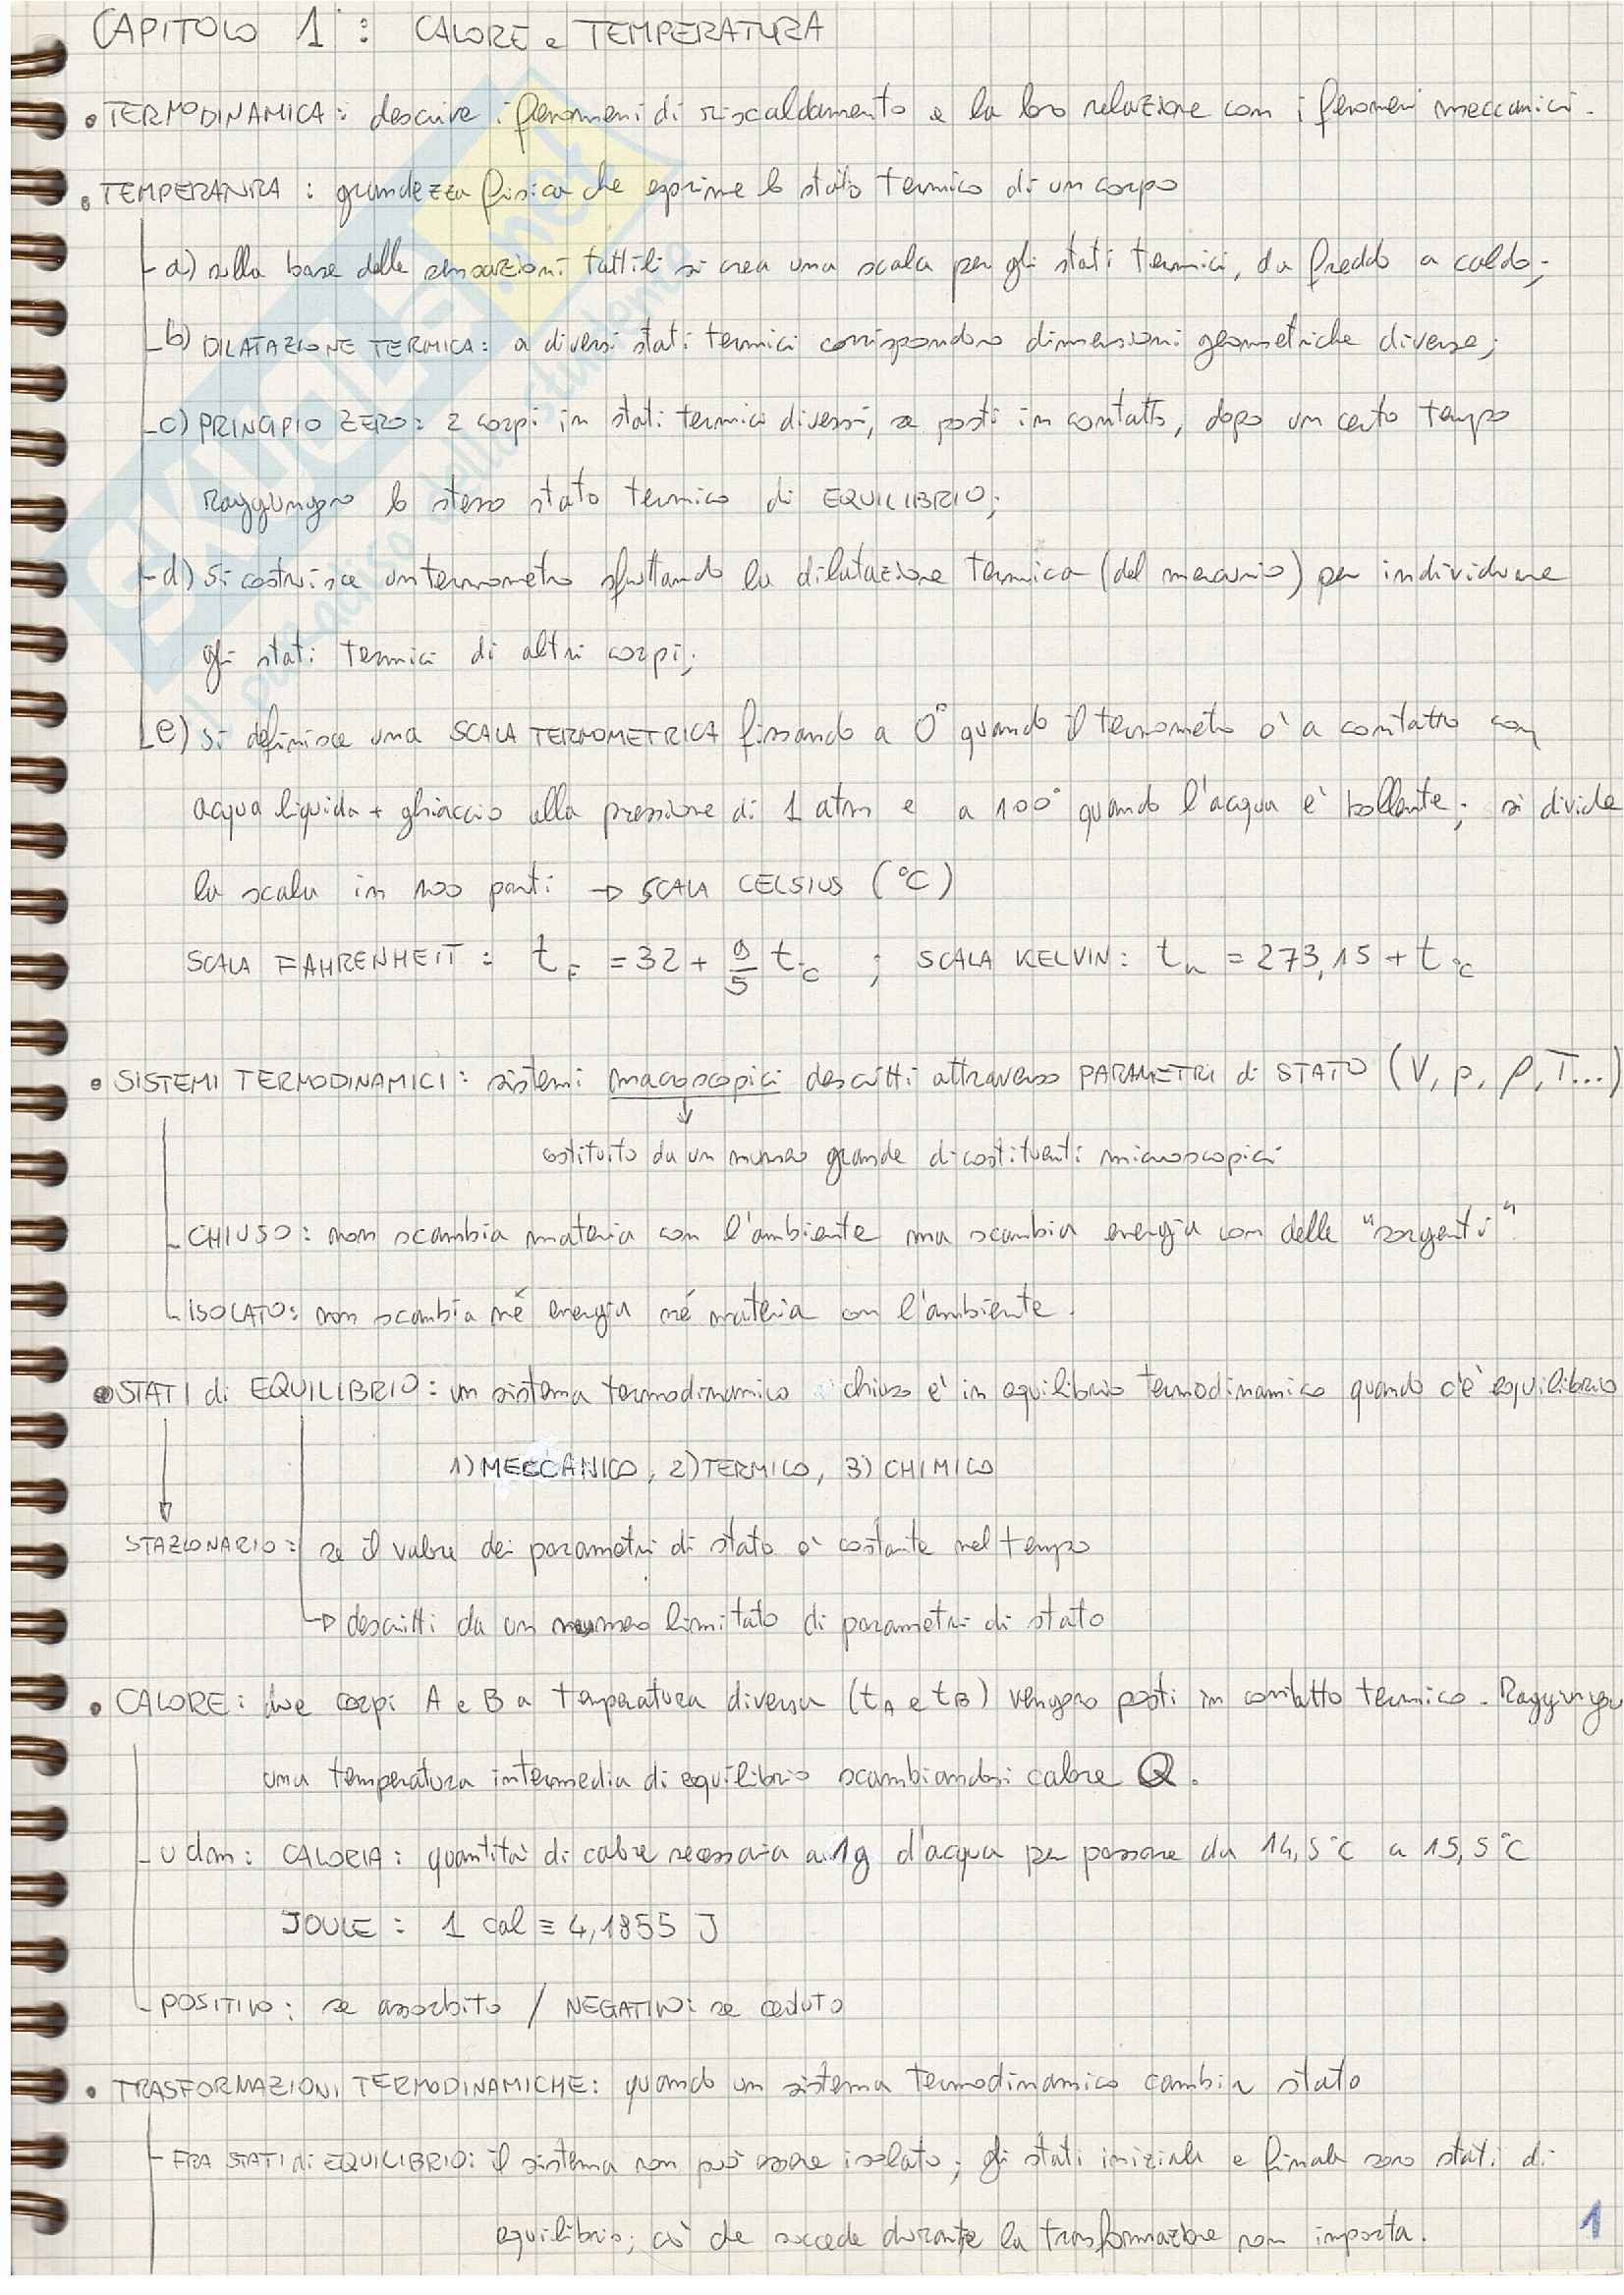 CAPITOLO 1 : CALORE e TEMPERATURA
• TERMODINAMICA: descrive i fenomeni di riscaldamento e la loro relazione con i fenomeni meccanici.
• TEMPERATURA : grandezza fisica che esprime lo stato termico di un corpo
a) sulla base delle sensazioni tattili si crea una scala per gli stati termici, da freddo a caldo;
b) DILATAZIONE TERMICA: a diversi stati termici corrispondono dimensioni geometriche diverse;
c) PRINCIPIO ZERO: 2 corpi in stati termici diversi, se posti in contatto, dopo un certo tempo
raggiungono lo stesso stato termico di EQUILIBRIO;
d) si costruisce un termometro sfruttando la dilatazione termica (del mercurio) per individuare
gli stati termici di altri corpi;
e) si definisce una SCALA TERMOMETRICA fissando a 0° quando il termometro è a contatto con
acqua liquida + ghiaccio alla pressione di 1 atm e a 100° quando l'acqua è bollente; si divide
la scala in 100 parti → SCALA CELSIUS (°C)
SCALA FAHRENHEIT : t F = 32 + 9/5 t °C ; SCALA KELVIN: t K = 273,15 + t °C
• SISTEMI TERMODINAMICI: sistemi macroscopici descritti attraverso PARAMETRI di STATO (V, p, ρ, T...)
↓
costituito da un numero grande di costituenti microscopici
CHIUSO: non scambia materia con l'ambiente ma scambia energia con delle "sorgenti".
ISOLATO: non scambia né energia né materia con l'ambiente.
• STATI di EQUILIBRIO: un sistema termodinamico chiuso è in equilibrio termodinamico quando c'è equilibrio
1) MECCANICO, 2) TERMICO, 3) CHIMICO
STAZIONARIO: se il valore dei parametri di stato è costante nel tempo
→ descritti da un numero limitato di parametri di stato
• CALORE: due corpi A e B a temperatura diversa (tA e tB) vengono posti in contatto termico. Raggiungono
una temperatura intermedia di equilibrio scambiandosi calore Q.
udm: CALORIA: quantità di calore necessaria a 1g d'acqua per passare da 14,5°C a 15,5°C
JOULE : 1 cal ≡ 4,1855 J
POSITIVO: se assorbito / NEGATIVO: se ceduto
• TRASFORMAZIONI TERMODINAMICHE: quando un sistema termodinamico cambia stato
FRA STATI di EQUILIBRIO: il sistema non può essere isolato; gli stati iniziale e finale sono stati di
equilibrio; ciò che succede durante la trasformazione non importa.
1